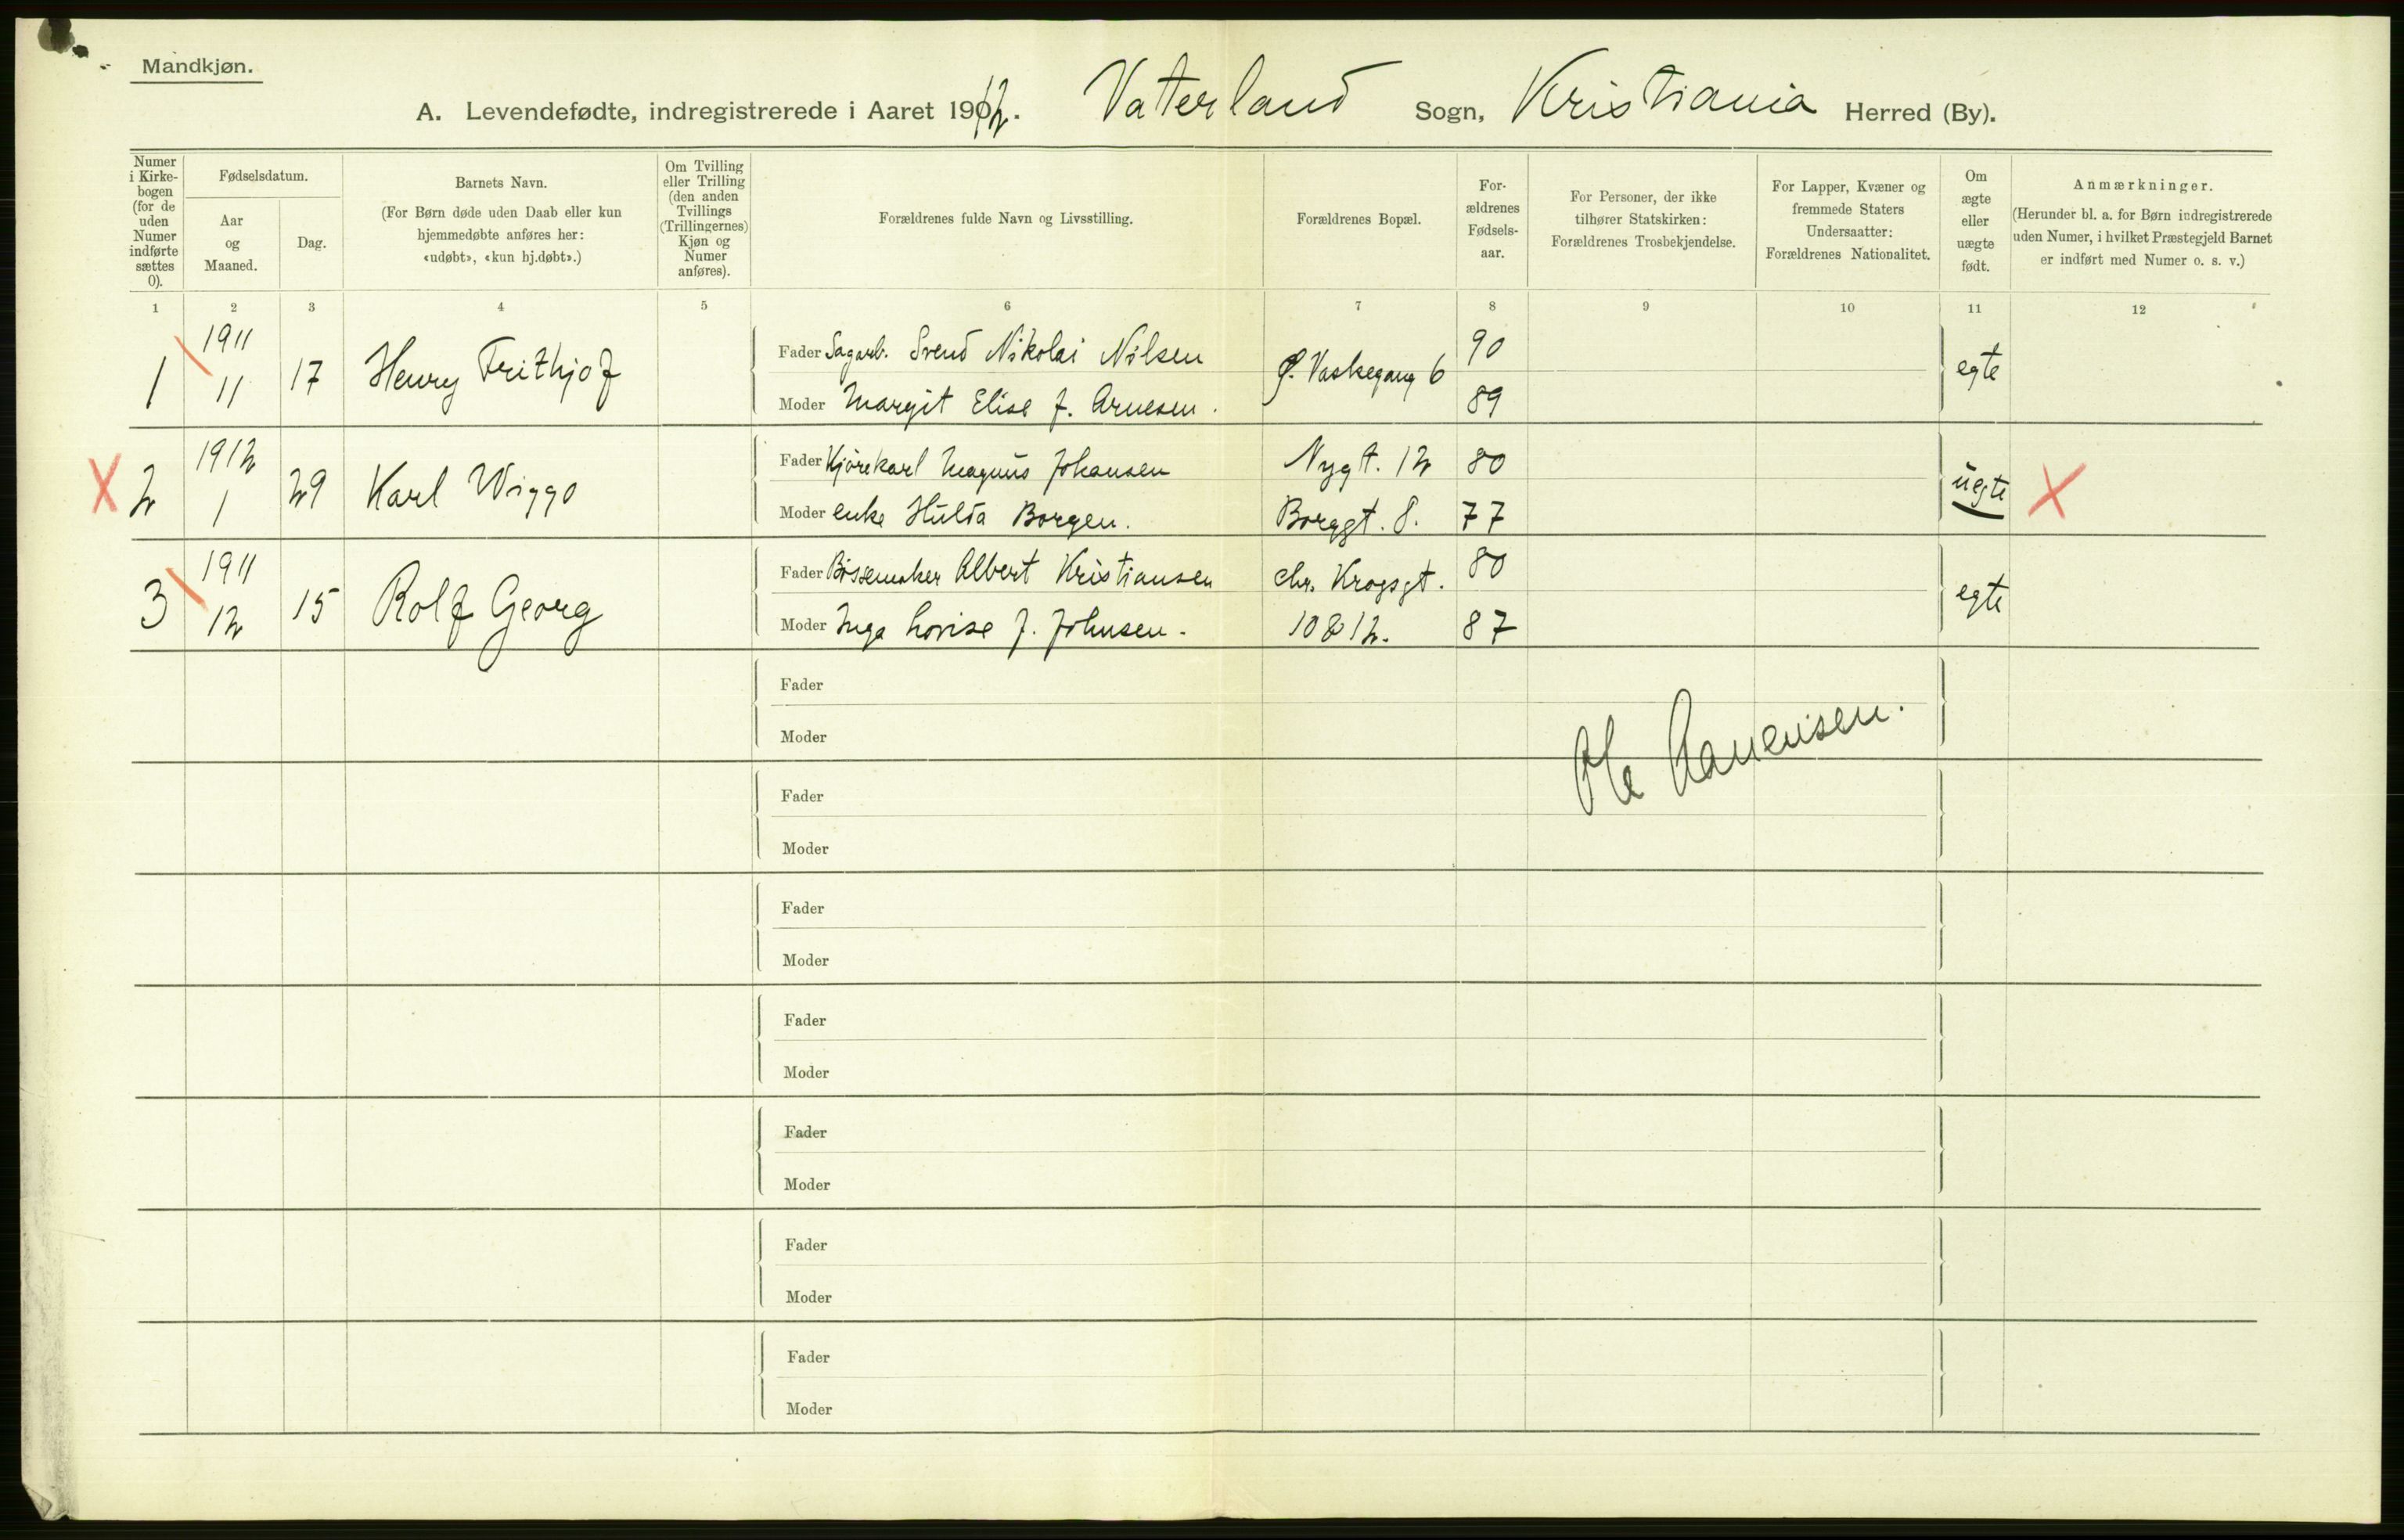 Mandkjøn.
A. Levendefødte, indregistrerede i Aaret 1912. Vaterland Sogn, Kristiania Herred (By).
Numer i Kirke-bogen (for de uden Numer indførte sættes 0).
Fødselsdatum.
Aar og Maaned.
Dag.
Barnets Navn.
(For Børn døde uden Daab eller kun
hjemmedøbte anføres her:
«udøbt», «kun hj.døbt».)
Om Tvilling
eller Trilling
(den anden
Tvillings
(Trillingernes)
Kjøn og
Numer
anføres).
Forældrenes fulde Navn og Livsstilling.
Forældrenes Bopæl.
For-
ældrenes
Fødsels-
aar.
For Personer, der ikke
tilhører Statskirken:
Forældrenes Trosbekjendelse.
For Lapper, Kvæner og
fremmede Staters
Undersaatter:
Forældrenes Nationalitet.
Om
ægte
eller
uægte
født.
Anmærkninger.
(Herunder bl. a. for Børn indregistrerede
uden Numer, i hvilket Præstegjeld Barnet
er indført med Numer o. s. v.)
1 2 3 4 5 6 7 8 9 10 11 12
1 1911 11 17 Henry Frithjof
Fader Sagarb. Svend Nikolai Nilsen Ø. Vaskegang 6 90 egte
Moder Margit Elise f. Arnesen. 89
X 2 1912 1 29 Karl Wiggo
Fader Kjørekarl Magnus Johansen Nygt. 12 80 uegte X
Moder enke Hulda Borgen. Borggt. 8. 77
3 1911 12 15 Rolf Georg
Fader Bøssemaker Albert Kristiansen Chr. Krogsgt. 80 egte
Moder Inga Lovise f. Johnsen. 10 & 12. 87
Fader
Moder
Ole
Fader
Moder
Fader
Moder
Fader
Moder
Fader
Moder
Fader
Moder
Fader
Moder